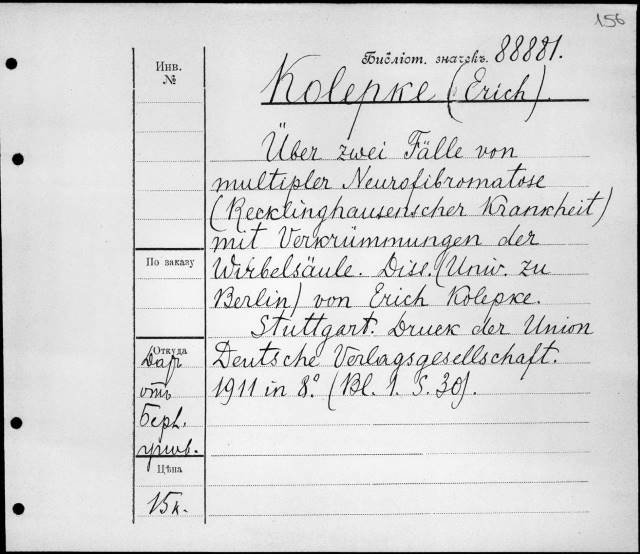 156
Инв.
№
Библіот. значекъ. 88881.
Kolepke (Erich).
Über zwei Fälle von
multipler Neurofibromatose
(Recklinghausenscher Krankheit)
mit Verkrümmungen der
Wirbelsäule. Diss. (Univ. zu
Berlin) von Erich Kolepke.
Stuttgart. Druck der Union
Deutsche Verlagsgesellschaft.
1911 in 8°. (Bl. 1. S. 30).
По заказу
Откуда
Даръ
отъ
Берл.
унив.
Цѣна
15к.